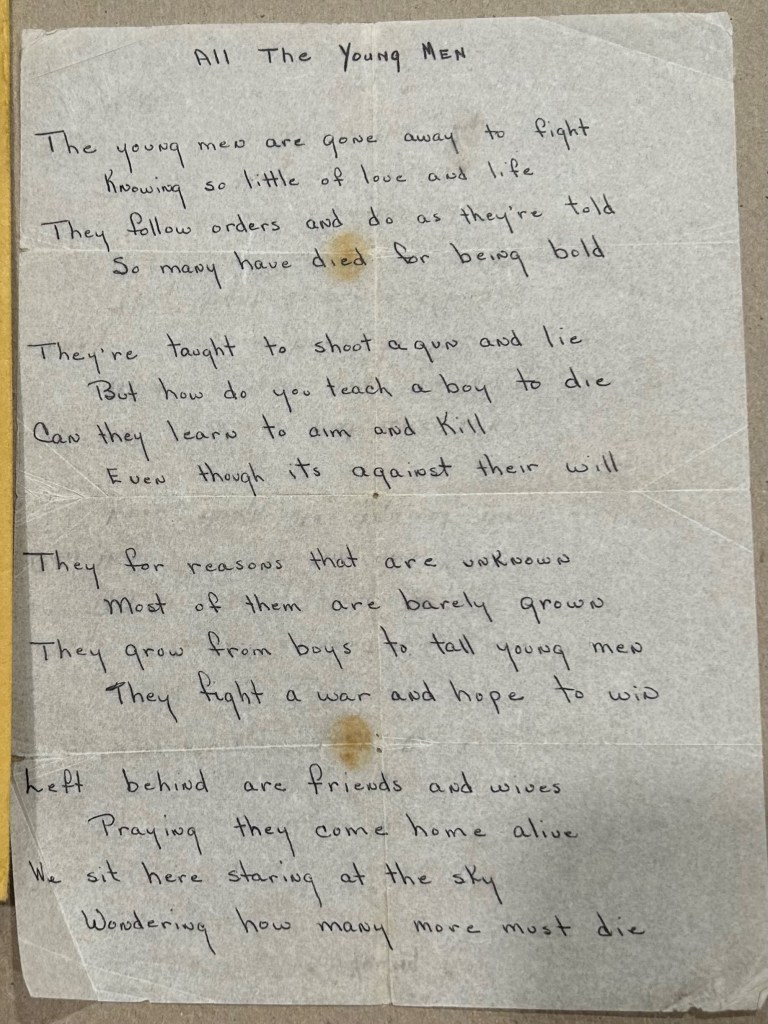 All The Young Men
The young men are gone away to fight
Knowing so little of love and life
They follow orders and do as they're told
So many have died for being bold
They're taught to shoot a gun and lie
But how do you teach a boy to die
Can they learn to aim and Kill
Even though its against their will
They for reasons that are unknown
Most of them are barely grown
They grow from boys to tall young men
They fight a war and hope to win
Left behind are friends and wives
Praying they come home alive
We sit here staring at the sky
Wondering how many more must die